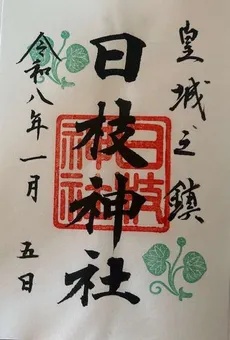 皇城之鎮
日枝神社
日枝神社
令和八年一月五日